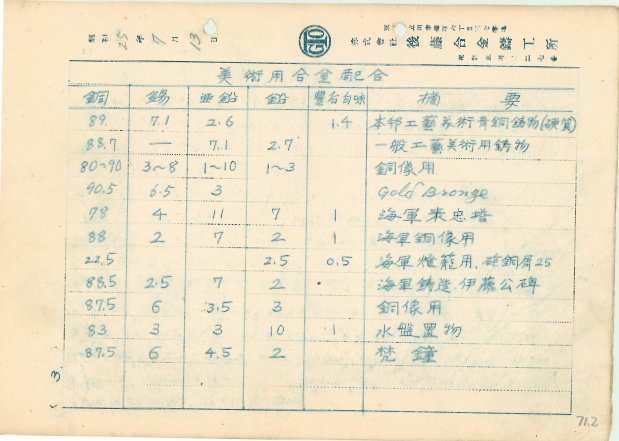 昭和25年7月13日
GTO
株式會社 後藤合金鑄工所
美術用合金配合
銅 錫 亜鉛 鉛 摘要
89. 7.1 2.6 1.4 本邦工藝美術青銅鋳物(硬質)
88.7 — 7.1 2.7 一般工藝美術用鋳物
80~90 3~8 1~10 1~3 銅像用
90.5 6.5 3 Gold Bronze
78 4 11 7 1 海軍 忠塔
88 2 7 2 1 海軍銅像用
22.5 2.5 0.5 海軍燈籠用.砲銅屑25
88.5 2.5 7 2 海軍鋳造.伊藤公碑
87.5 6 3.5 3 銅像用
83 3 3 10 1 水盤置物
87.5 6 4.5 2 梵鐘
3.
71.2